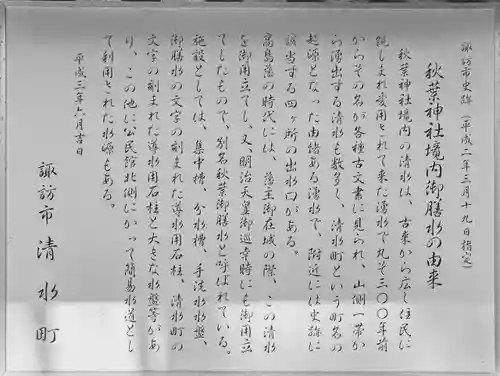 諏訪市史跡（平成二年三月十九日指定）
秋葉神社境内御膳水の由来
秋葉神社境内の清水は、古来から広く住民に
親しまれ愛用されて来た湧水で凡そ三〇〇年前
からその名が各種古文書に見られ、山側一帯か
ら湧出する清水も数多く、清水町という町名の
起源となった由緒ある湧水で、附近には史跡に
該当する四ヶ所の出水口がある。
高島藩の時代には、藩主御在城の際、この清水
を御用立てし、又、明治天皇御巡幸時にも御用立
てしたもので、別名秋葉御膳水と呼ばれている。
施設としては、集中槽、分水槽、手洗水水盤、
御膳水の文字の刻まれた導水用石柱、清水町の
文字の刻まれた導水用石柱と大きな水盤等があ
り、この他に公民館北側にかって簡易水道とし
て利用された水源もある。
平成三年六月吉日
諏訪市清水町